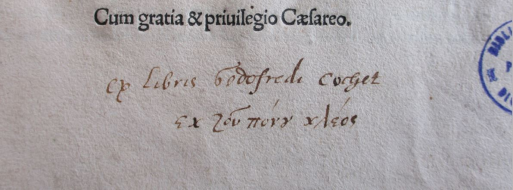 Cum gratia & priuilegio Cæsareo.
ex libris Godofredi Cochet
εκ του πόνου κλέος
BIBLI